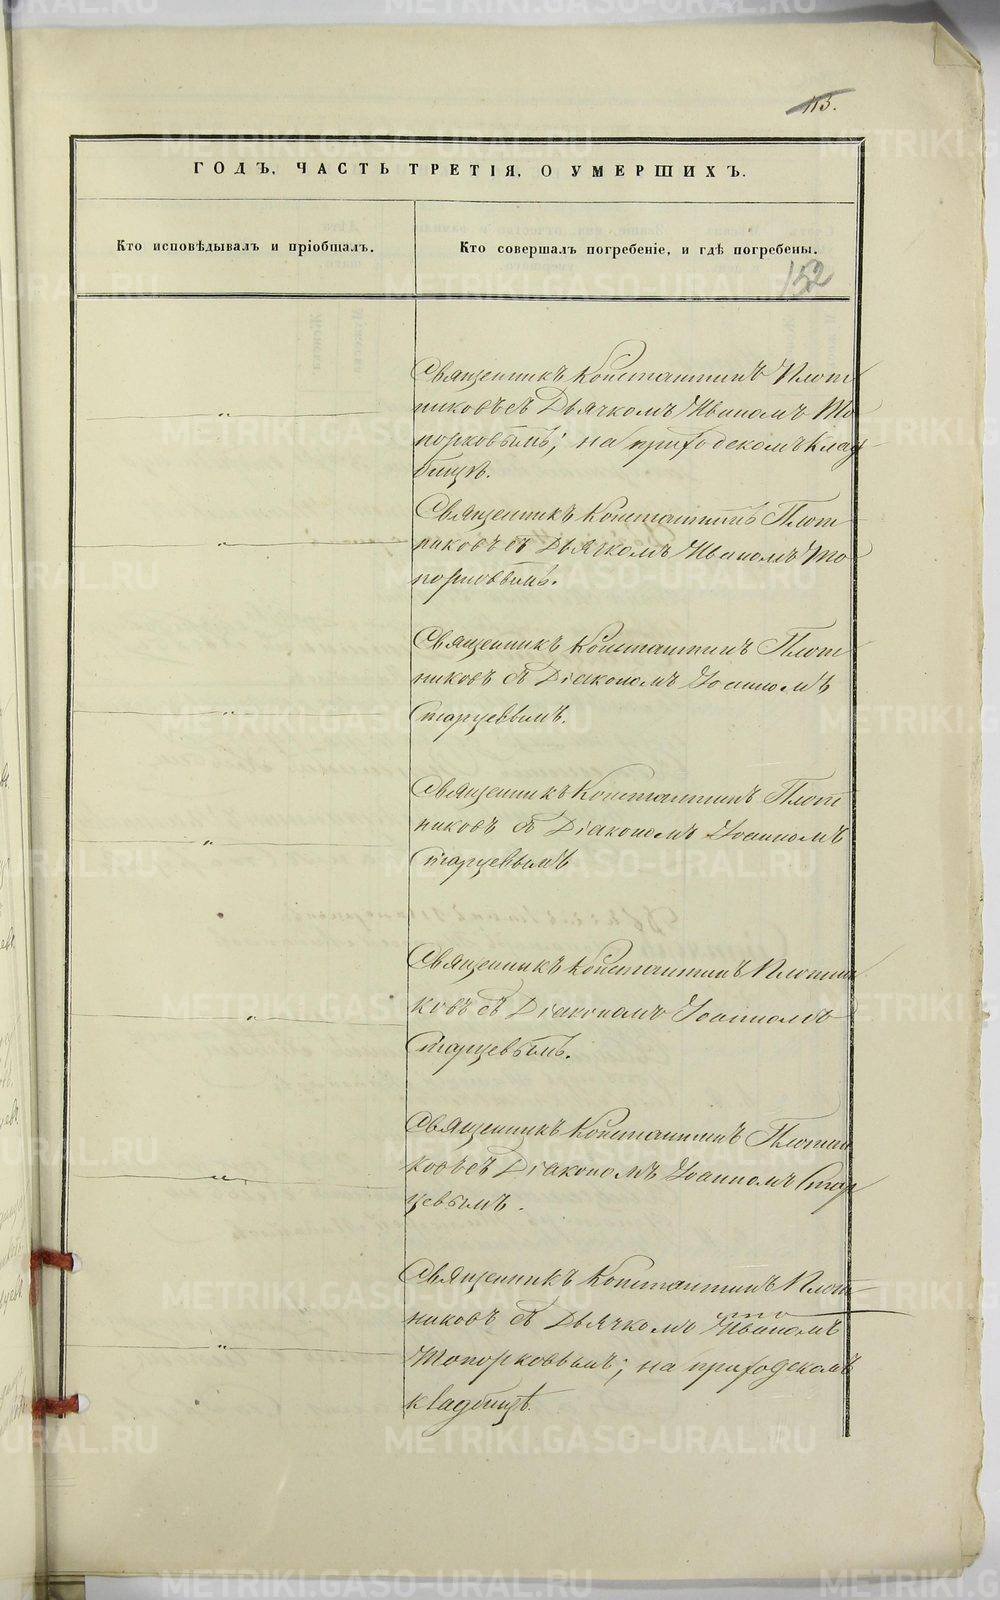 113.
ГОДЪ, ЧАСТЬ ТРЕТІЯ, О УМЕРШИХЪ.
Кто исповѣдывалъ и пріобщалъ.
Кто совершалъ погребеніе, и гдѣ погребены.
152
Священникъ Константинъ Плот
никовъ съ Дьячкомъ Иваномъ То
порковымъ; на приходскомъ клад
бищѣ.
Священникъ Константинъ Плот
никовъ съ Дьячкомъ Иваномъ То
порковымъ.
Священникъ Константинъ Плот
никовъ съ Діакономъ Іоанномъ
Старцевымъ.
Священникъ Константинъ Плот
никовъ съ Діакономъ Іоанномъ
Старцевымъ
Священникъ Константинъ Плотни
ковъ съ Діакономъ Іоанномъ
Старцевымъ.
Священникъ Константинъ Плотни
ковъ съ Діакономъ Іоанномъ Стар
цевымъ.
Священникъ Константинъ Плот
никовъ съ Дьячкомъ Иваномъ
Топорковымъ; на приходскомъ
кладбищѣ.
METRIKI.GASO-URAL.RU